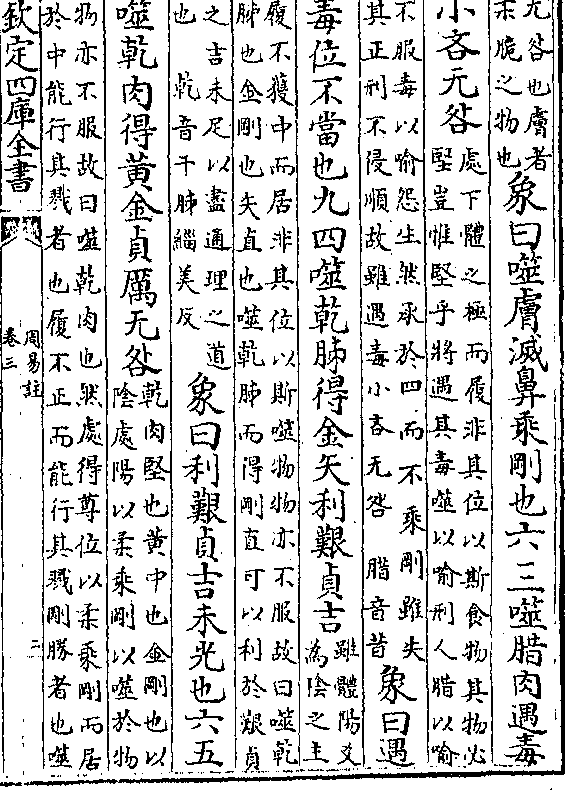 无咎也膚者
柔脆之物也
象曰噬膚滅鼻乘剛也六三噬腊肉遇毒
小吝无咎
處下體之極而履非其位以斯食物其物必
堅豈惟堅乎將遇其毒噬以喻刑人腊以喻
不服毒以喻怨生然承於四而不乘剛雖失
其正刑不侵順故雖遇毒小吝无咎 腊音昔
象曰遇
毒位不當也九四噬乾胏得金矢利艱貞吉
雖體陽爻
為陰之主
履不獲中而居非其位以斯噬物物亦不服故曰噬乾
胏也金剛也矢直也噬乾胏而得剛直可以利於艱貞
之吉未足以盡通理之道
也 乾音干胏緇美反
象曰利艱貞吉未光也六五
噬乾肉得黃金貞厲无咎
乾肉堅也黃中也金剛也以
陰處陽以柔乘剛以噬於物
物亦不服故曰噬乾肉也然處得尊位以柔乘剛而居
於中能行其戮者也履不正而能行其戮剛勝者也噬
欽定四庫全書
周易註
卷三